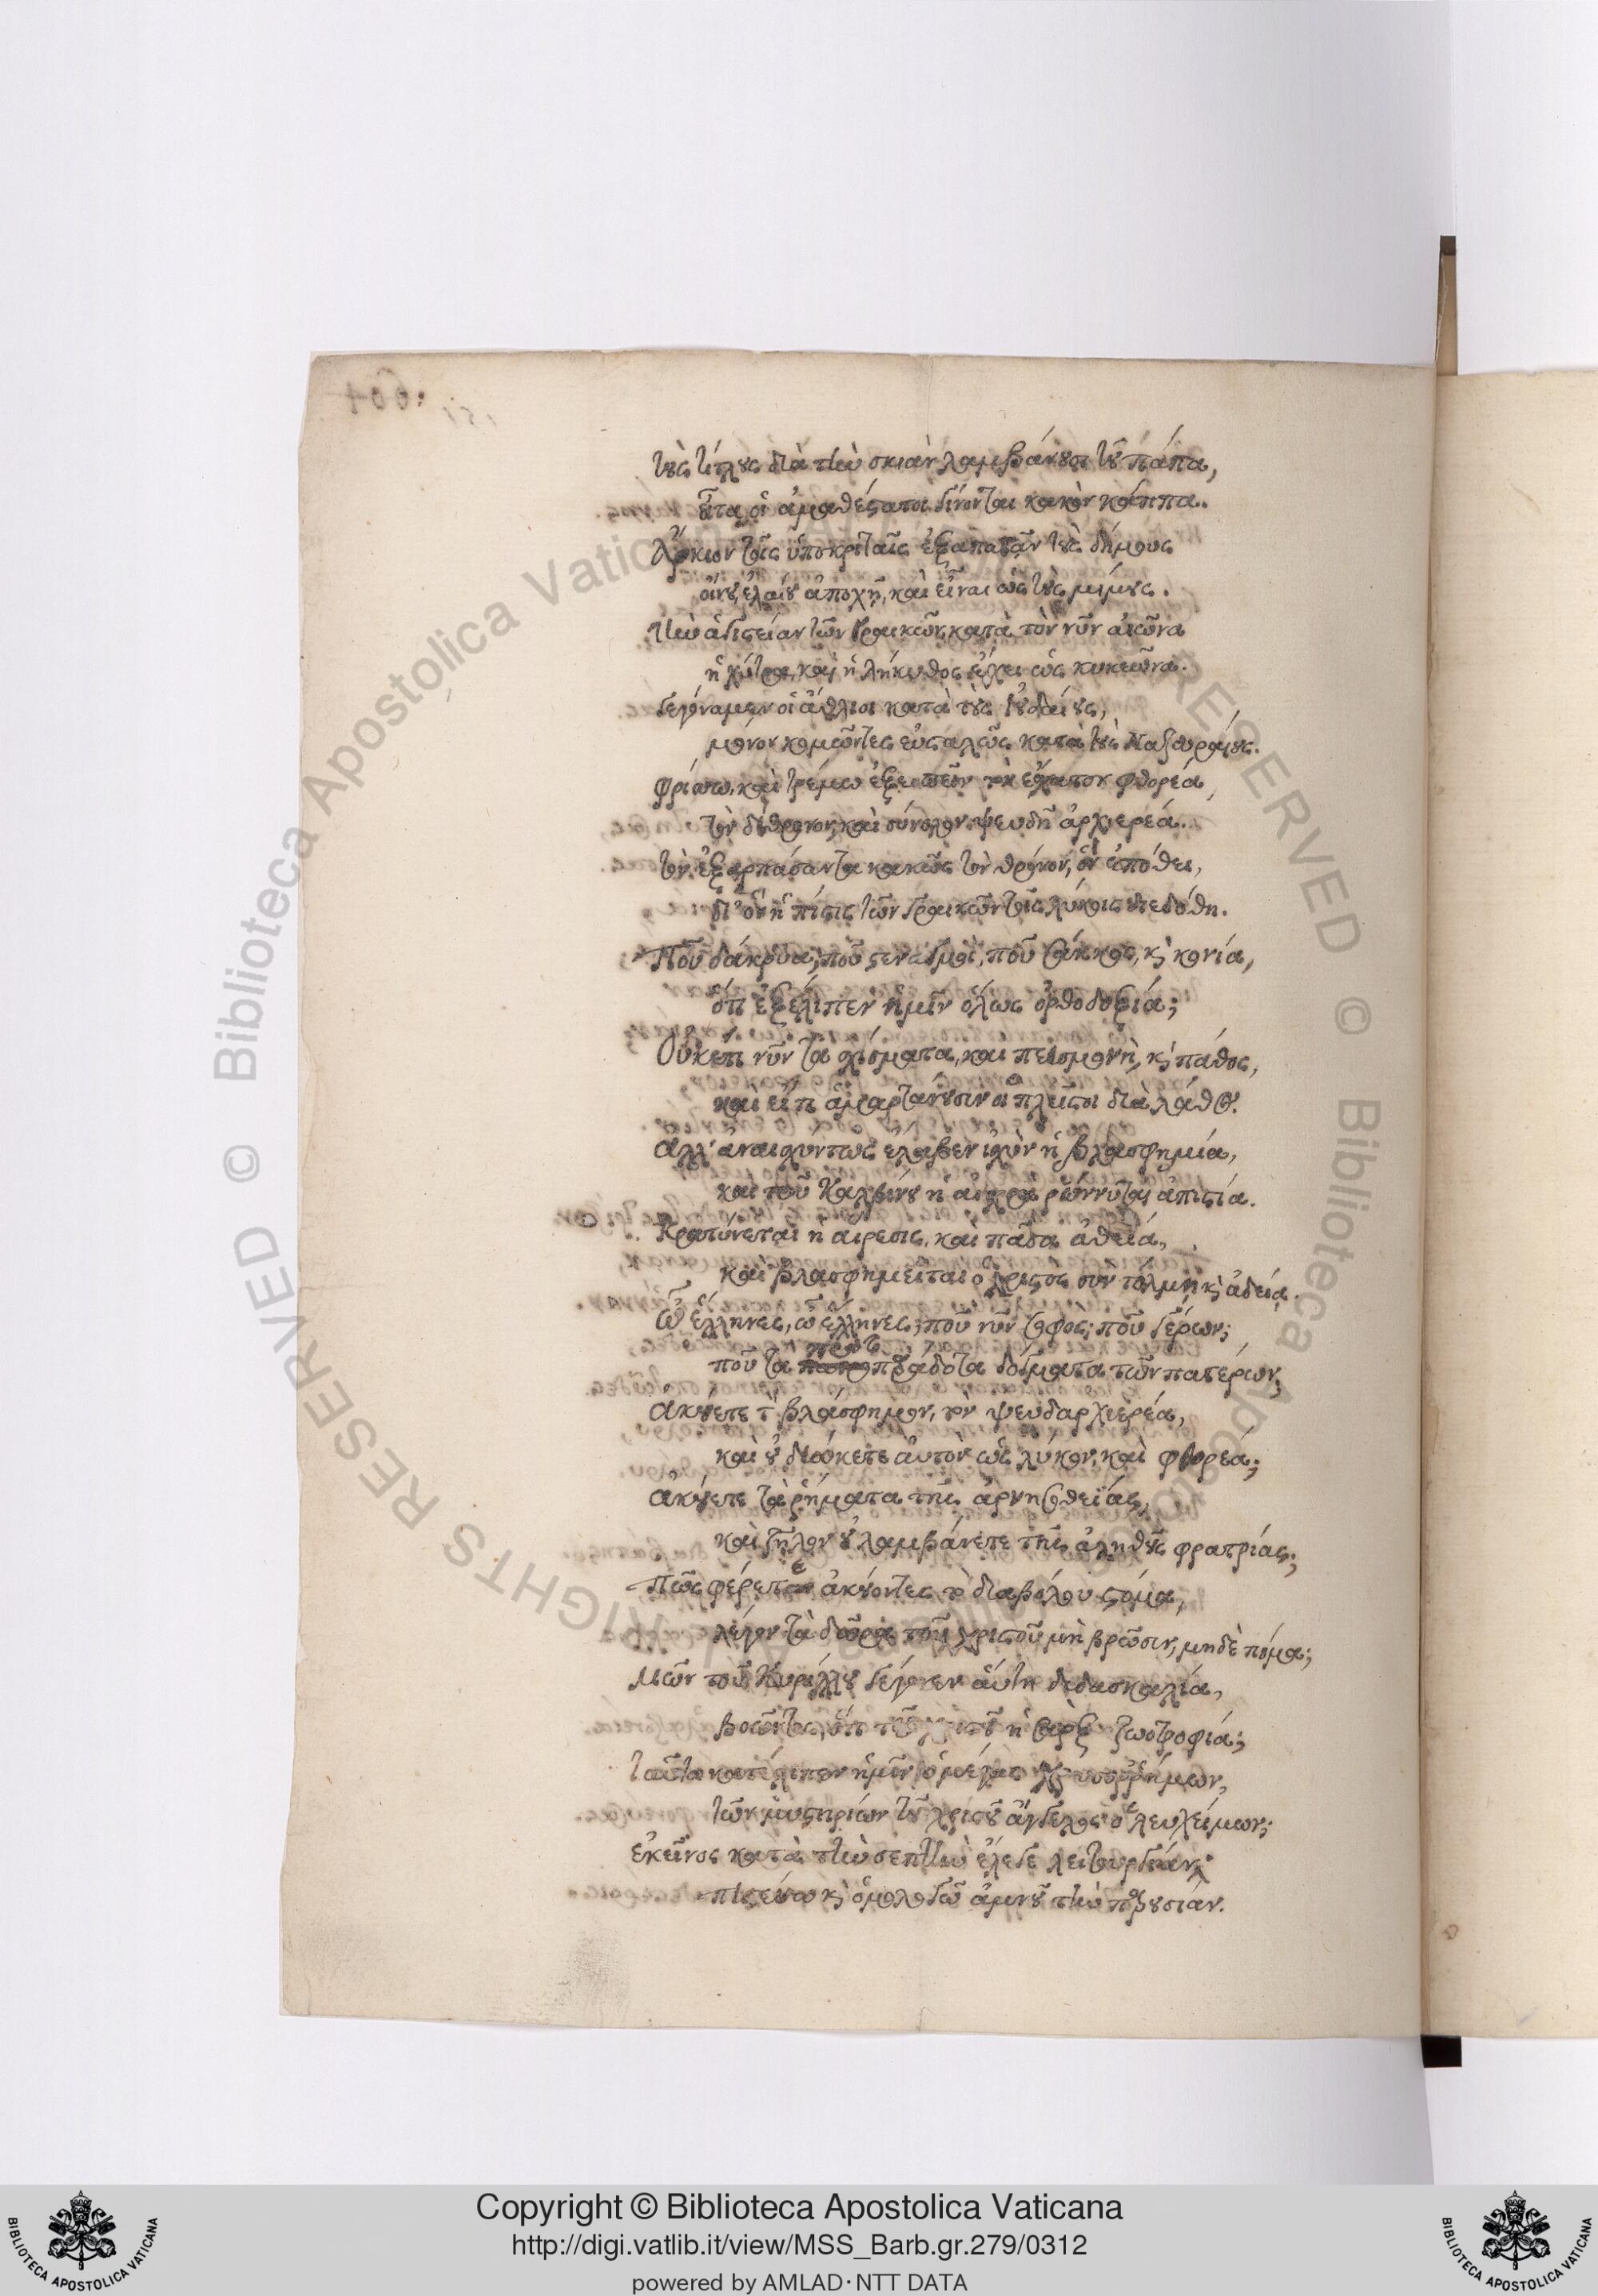 τοὺς τίτλους διὰ τὴν σκιὰν λαμβάνουσι τοῦ πάπα,
εἶτα οἱ ἀμαθέστατοι γίνονται κακὸν κάππα.
Ἄρκιον τοῖς ὑποκριταῖς ἐξαπατᾶν τοὺς δήμους
οἴνου, ἐλαίου ἀποχῇ, καὶ εἶναι ὡς τοὺς μίμους.
τὴν ἁγιστείαν τῶν Γραικῶν κατὰ τὸν νῦν αἰῶνα
ἡ χύτρα, καὶ ἡ λήκυθος ἔχει ὡς κυκεῶνα.
Γεγόναμεν οἱ ἄθλιοι κατὰ τοὺς Ἰουδαίους,
μόνον κομῶντες εὐσταλῶς κατὰ τοὺς Ναζουραίους.
φρίττω, καὶ τρέμω ἐξειπεῖν τὸν ἔσχατον φθορέα,
τὸν δίθρονον, καὶ σύνολον ψευδῆ ἀρχιερέα.
τὸν ἐξαρπάσαντα κακῶς τὸν θρόνον, ὃν ἐπόθει,
δι' ὃν ἡ πίστις τῶν Γραικῶν τοῖς λύκοις διεδόθη.
Ποῦ δάκρυα; ποῦ στεναγμοὶ, ποῦ σάκκος, κὶ κονία,
ὅτι ἐξέλιπεν ἡμῖν ὅλως ὀρθοδοξία;
Οὐκέτι νῦν τὰ σχίσματα, καὶ πεισμονὴ, κὶ πάθος,
καὶ εἴ τι ἁμαρτάνουσιν οἱ πλεῖστοι διὰ λάθος.
ἀλλ' ἀναισχύντως ἔλαβεν ἰσχὺν ἡ βλασφημία,
καὶ τοῦ Καλβίνου ἡ αἰσχρὰ ῥώννυται ἀπιστία.
Κρατύνεται ἡ αἵρεσις, καὶ πᾶσα ἀθεΐα,
καὶ βλασφημεῖται ὁ χριστὸς σὺν τόλμῃ κὶ ἀδείᾳ.
Ὦ ἕλληνες, ὦ ἕλληνες; ποῦ νῦν σοφὸς; ποῦ γέρων;
ποῦ τὰ παράδοτα δόγματα τῶν πατέρων;
ἀκούετε τὸν βλάσφημον, τὸν ψευδαρχιερέα,
καὶ οὐ διώκετε αὐτὸν ὡς λύκον, καὶ φθορέα;
ἀκούετε τὰ ῥήματα τῆς ἀρνησιθεΐας,
καὶ ζῆλον οὐ λαμβάνετε τῆς ἀληθοῦς φρατρίας;
Πῶς φέρετε ἀκούοντες τὸ διαβόλου στόμα,
λέγον τὰ δῶρα τοῦ χριστοῦ μὴ βρῶσιν, μηδὲ πόμα;
Μῶν τοῦ Κυρίλλου γέγονεν αὕτη διδασκαλία,
βοῶντος, ὅτι τοῦ χριστοῦ ἡ σὰρξ ζωοτροφία;
ταῦτα κατέλιπεν ἡμῖν ὁ μέγας χρυσορρήμων,
τῶν μυστηρίων τοῦ χριστοῦ ἄγγελος ὁ λευχείμων;
ἐκεῖνος κατὰ τὴν σεπτὴν ἔλεγε λειτουργίαν,
πιστεύω κὶ ὁμολογῶ ἀμνοῦ τὴν παρουσίαν.
Copyright © Biblioteca Apostolica Vaticana
http://digi.vatlib.it/view/MSS_Barb.gr.279/0312
powered by AMLAD·NTT DATA